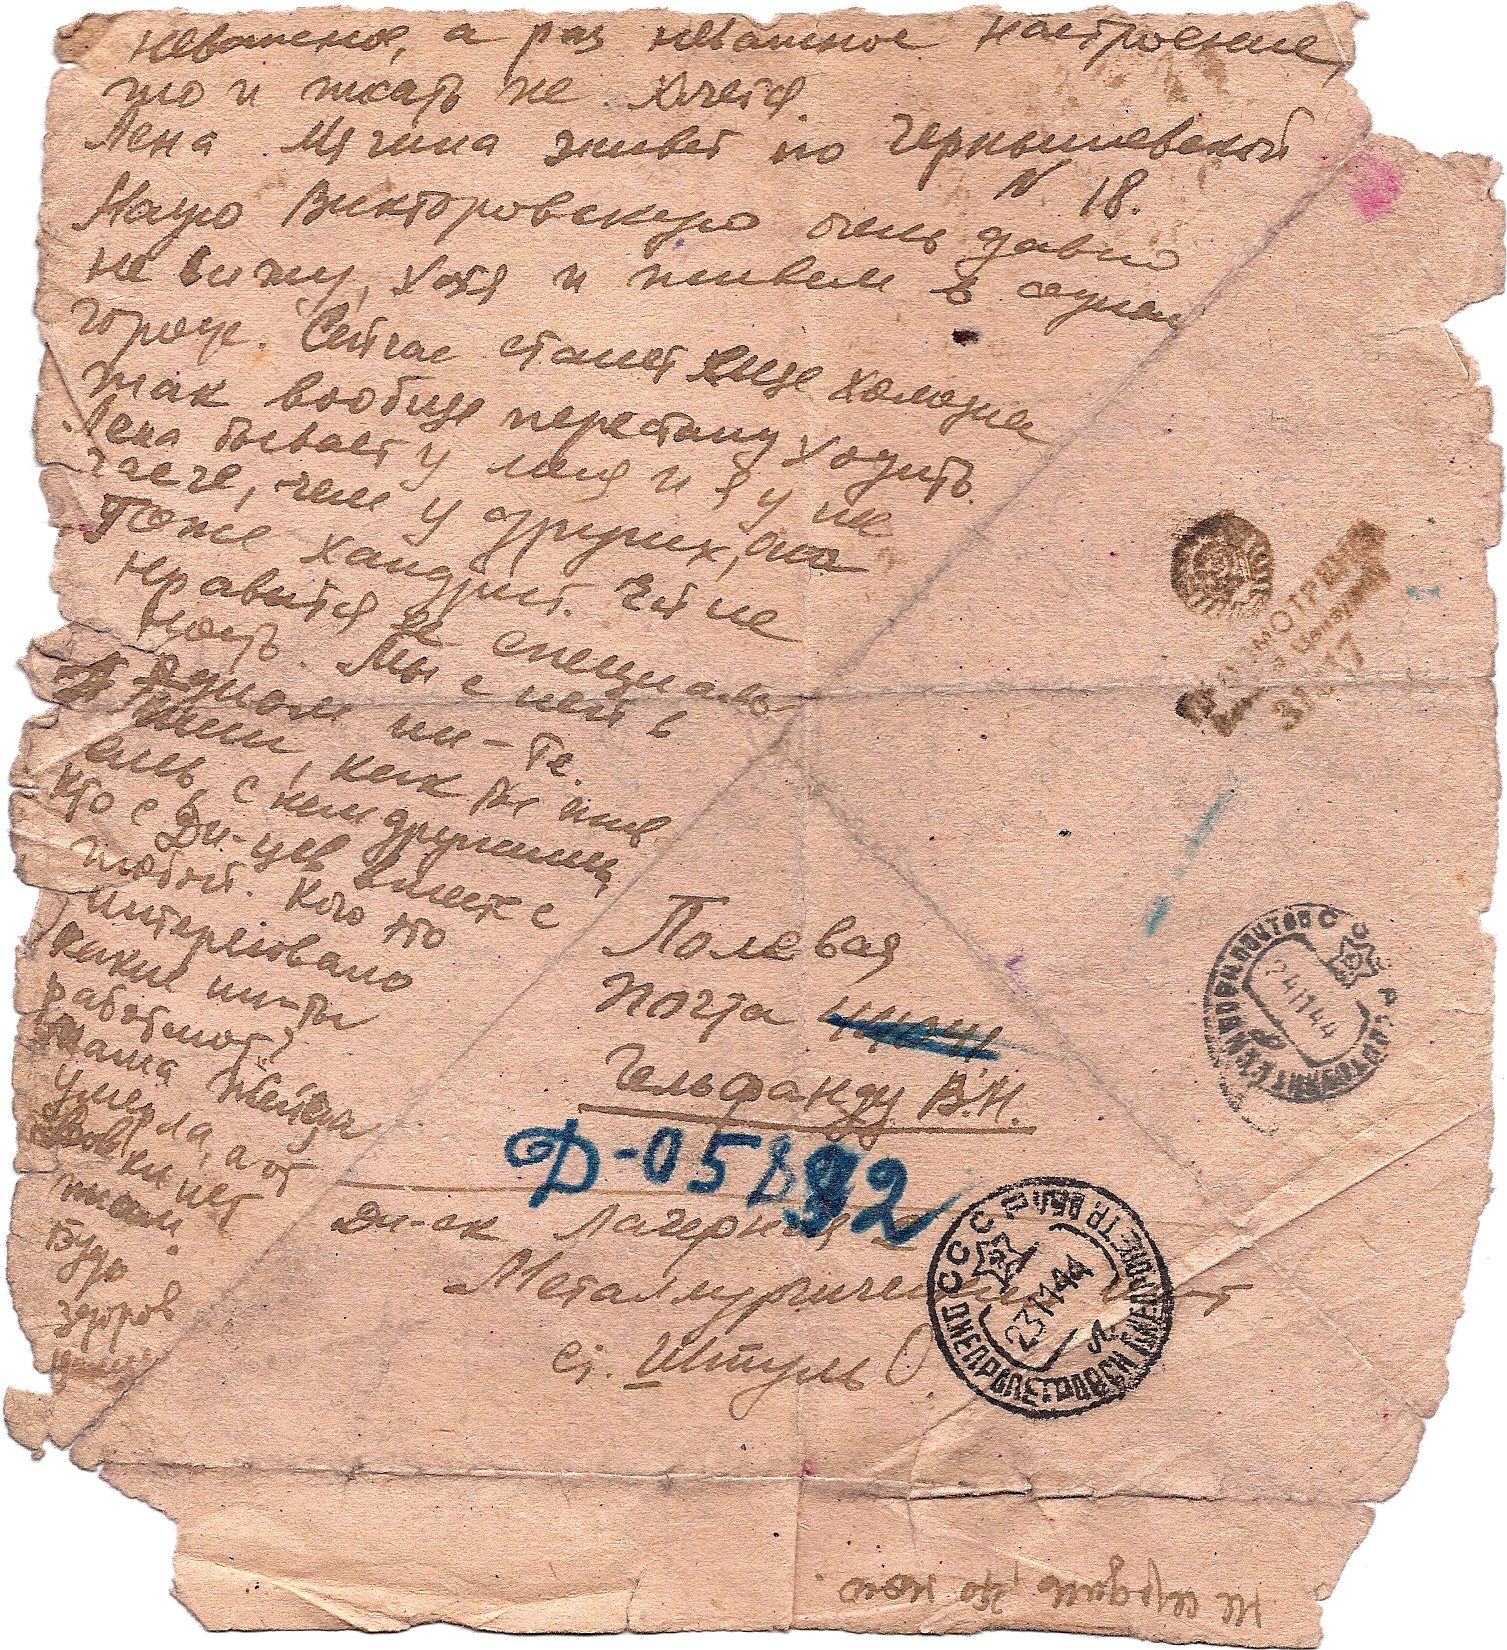 неважное, а раз неважное настроение,
то и писать не хочется.
Лена Мячина живет по Чернышевской
N 18.
Надю Викторовскую очень давно
не вижу, хотя и живем в одном
городе. Сейчас станет еще холоднее
так вообще перестану ходить.
Лена бывает у меня и я у нее
чаще, чем у других, она
тоже хандрит. Ей не
нравится ее специаль-
ность. Мы с ней в
одном ин-те.
Пиши, как ты жив
ешь, с кем дружишь,
кто с Дн-цев вместе с
тобой. Кого что
интересовало
какие ин-ты
работают?
Мама
умерла, а от
Вовки нет
писем.
Будь
здоров
Полевая
почта
Гельфанду В.Н.
Д-05892
Дн-ск Лагерная
Металлургический ин-т
ст. Штуль О.
ПРОСМОТРЕНО
Военной Цензурой
СССР
24 11 44
СССР
ДНЕПРОПЕТРОВСК ДНЕПРОПЕТР. ОБЛ.
23 11 44